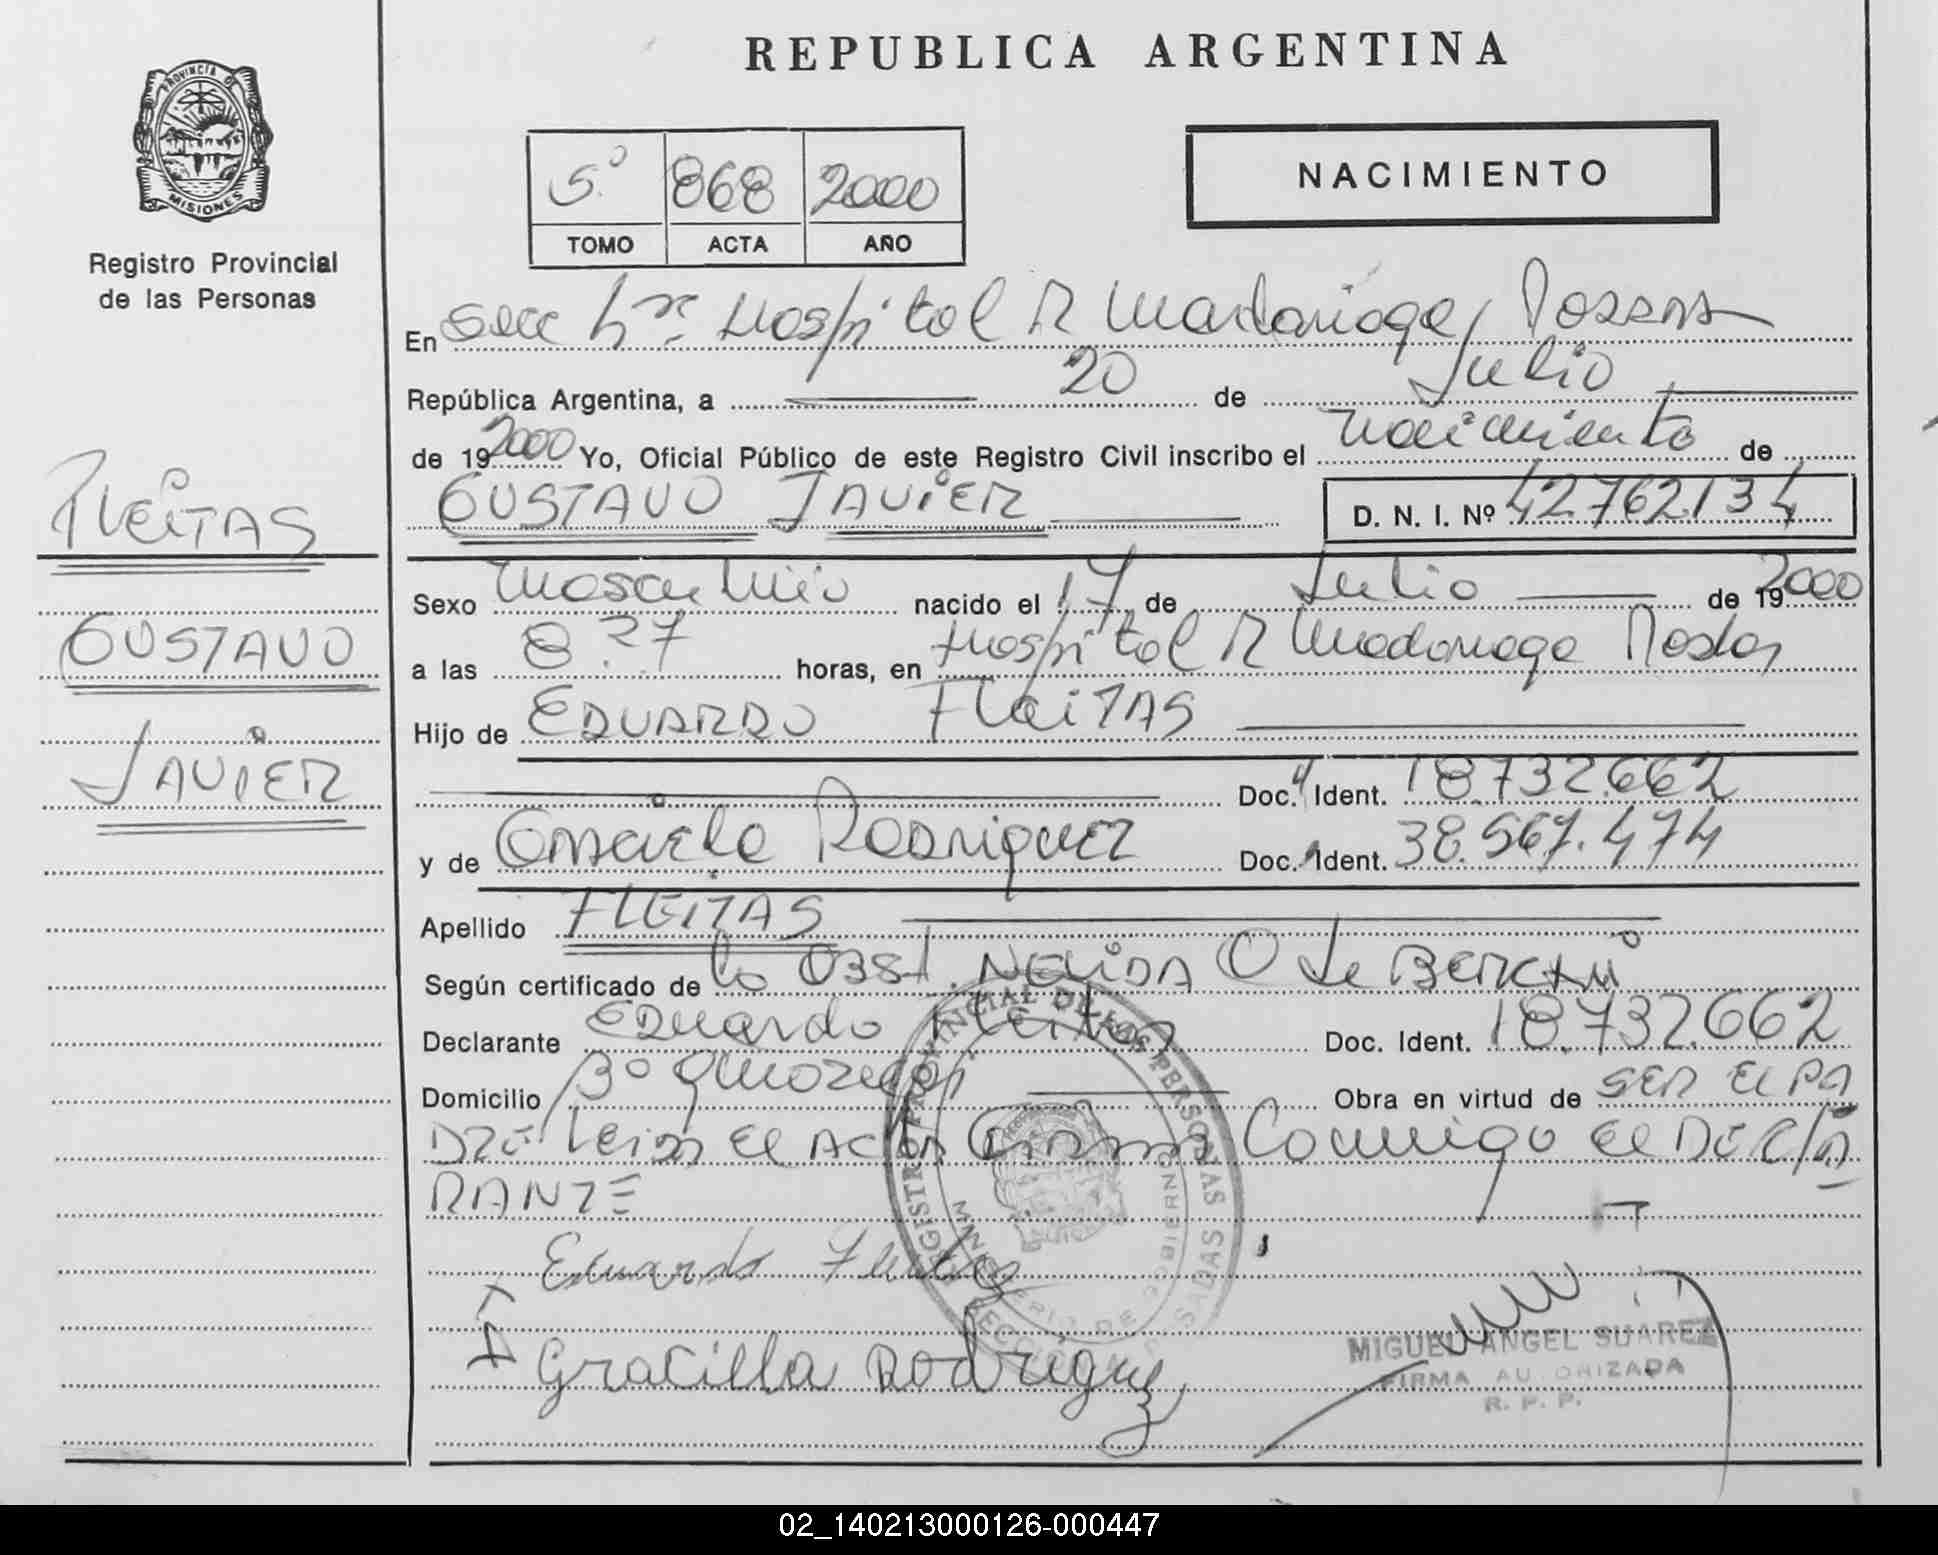 REPUBLICA ARGENTINA
PROVINCIA DE
MISIONES
Registro Provincial
de las Personas
5º 868 2000
TOMO ACTA AÑO
NACIMIENTO
En Secc Hospital R Madariaga, Posadas
República Argentina, a 20 de Julio
de 192000 Yo, Oficial Público de este Registro Civil inscribo el nacimiento de
GUSTAVO JAVIER D. N. I. Nº 42762134
FLEITAS
GUSTAVO
JAVIER
Sexo Masculino nacido el 17 de Julio de 192000
a las 8:27 horas, en Hospital R Madariaga Posdas
Hijo de EDUARDO FLEITAS
Doc. Ident. 18.732.662
y de Graciela Rodriguez Doc. Ident. 38.567.474
Apellido FLEITAS
Según certificado de la OBST. NELIDA O de
Declarante Eduardo Fleitas Doc. Ident. 18.732.662
Domicilio Bº Obra en virtud de SER EL PA
DRE Leida EL ACTA Firma Conmigo el DECLA
RANTE
Eduardo Fleitas
Gracilla Rodriguez
REGISTRO PROVINCIAL DE LAS PERSONAS
MINISTERIO DE GOBIERNO
MIGUEL ANGEL SUAREZ
FIRMA AUTORIZADA
R. P. P.
02_140213000126-000447